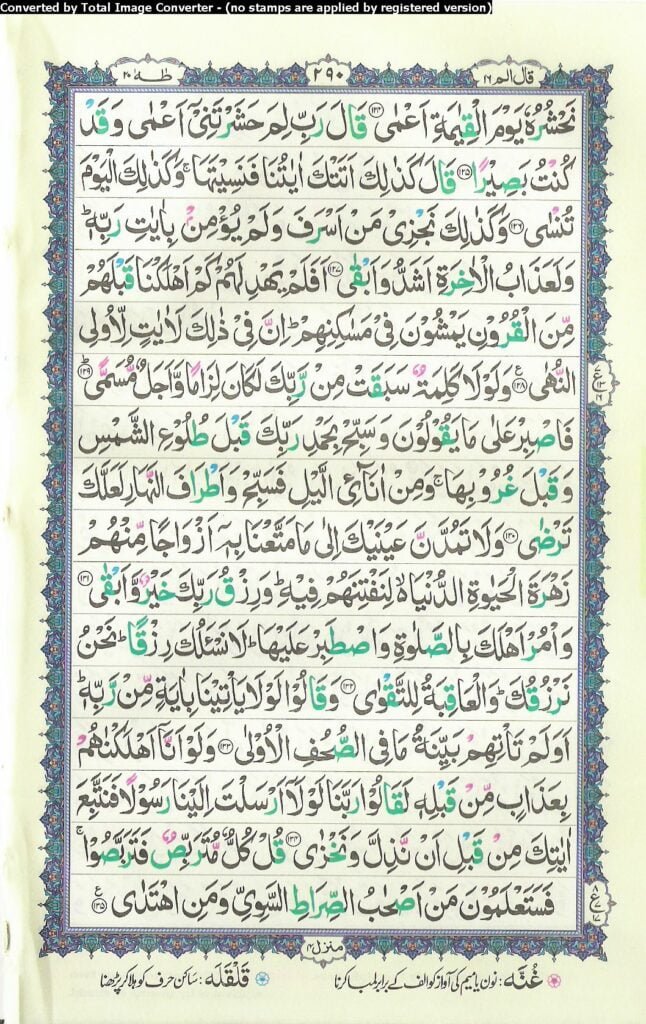 Converted by Total Image Converter - (no stamps are applied by registered version)
قال الم ۱۶
۲۹۰
طٰهٰ ۲۰
نَحْشُرُهٗ يَوْمَ الْقِيٰمَةِ اَعْمٰى ۝۱۲۴ قَالَ رَبِّ لِمَ حَشَرْتَنِيْۤ اَعْمٰى وَ قَدْ
كُنْتُ بَصِيْرًا ۝۱۲۵ قَالَ كَذٰلِكَ اَتَتْكَ اٰيٰتُنَا فَنَسِيْتَهَا ۚ وَكَذٰلِكَ الْيَوْمَ
تُنْسٰى ۝۱۲۶ وَكَذٰلِكَ نَجْزِيْ مَنْ اَسْرَفَ وَلَمْ يُؤْمِنْۢ بِاٰيٰتِ رَبِّهٖ ؕ
وَلَعَذَابُ الْاٰخِرَةِ اَشَدُّ وَاَبْقٰى ۝۱۲۷ اَفَلَمْ يَهْدِ لَهُمْ كَمْ اَهْلَكْنَا قَبْلَهُمْ
مِّنَ الْقُرُوْنِ يَمْشُوْنَ فِيْ مَسٰكِنِهِمْ ؕ اِنَّ فِيْ ذٰلِكَ لَاٰيٰتٍ لِّاُولِي
النُّهٰى ۝۱۲۸ وَلَوْلَا كَلِمَةٌ سَبَقَتْ مِنْ رَّبِّكَ لَكَانَ لِزَامًا وَّاَجَلٌ مُّسَمًّى ؕ۝۱۲۹
فَاصْبِرْ عَلٰى مَا يَقُوْلُوْنَ وَسَبِّحْ بِحَمْدِ رَبِّكَ قَبْلَ طُلُوْعِ الشَّمْسِ
وَقَبْلَ غُرُوْبِهَا ۚ وَمِنْ اٰنَآئِ الَّيْلِ فَسَبِّحْ وَاَطْرَافَ النَّهَارِ لَعَلَّكَ
تَرْضٰى ۝۱۳۰ وَلَا تَمُدَّنَّ عَيْنَيْكَ اِلٰى مَا مَتَّعْنَا بِهٖۤ اَزْوَاجًا مِّنْهُمْ
زَهْرَةَ الْحَيٰوةِ الدُّنْيَا ۙ لِنَفْتِنَهُمْ فِيْهِ ؕ وَرِزْقُ رَبِّكَ خَيْرٌ وَّاَبْقٰى ۝۱۳۱
وَاْمُرْ اَهْلَكَ بِالصَّلٰوةِ وَاصْطَبِرْ عَلَيْهَا ؕ لَا نَسْـَٔلُكَ رِزْقًا ؕ نَحْنُ
نَرْزُقُكَ ؕ وَالْعَاقِبَةُ لِلتَّقْوٰى ۝۱۳۲ وَقَالُوْا لَوْلَا يَاْتِيْنَا بِاٰيَةٍ مِّنْ رَّبِّهٖ ؕ
اَوَلَمْ تَاْتِهِمْ بَيِّنَةُ مَا فِي الصُّحُفِ الْاُوْلٰى ۝۱۳۳ وَلَوْ اَنَّاۤ اَهْلَكْنٰهُمْ
بِعَذَابٍ مِّنْ قَبْلِهٖ لَقَالُوْا رَبَّنَا لَوْلَاۤ اَرْسَلْتَ اِلَيْنَا رَسُوْلًا فَنَتَّبِعَ
اٰيٰتِكَ مِنْ قَبْلِ اَنْ نَّذِلَّ وَنَخْزٰى ۝۱۳۴ قُلْ كُلٌّ مُّتَرَبِّصٌ فَتَرَبَّصُوْا ۚ
فَسَتَعْلَمُوْنَ مَنْ اَصْحٰبُ الصِّرَاطِ السَّوِيِّ وَمَنِ اهْتَدٰى ۝۱۳۵
منزل ۴
غُنَّه: نون یا میم کی آواز کو الف کے برابر لمبا کرنا
قَلْقَلَه: ساکن حرف کو ہلا کر پڑھنا